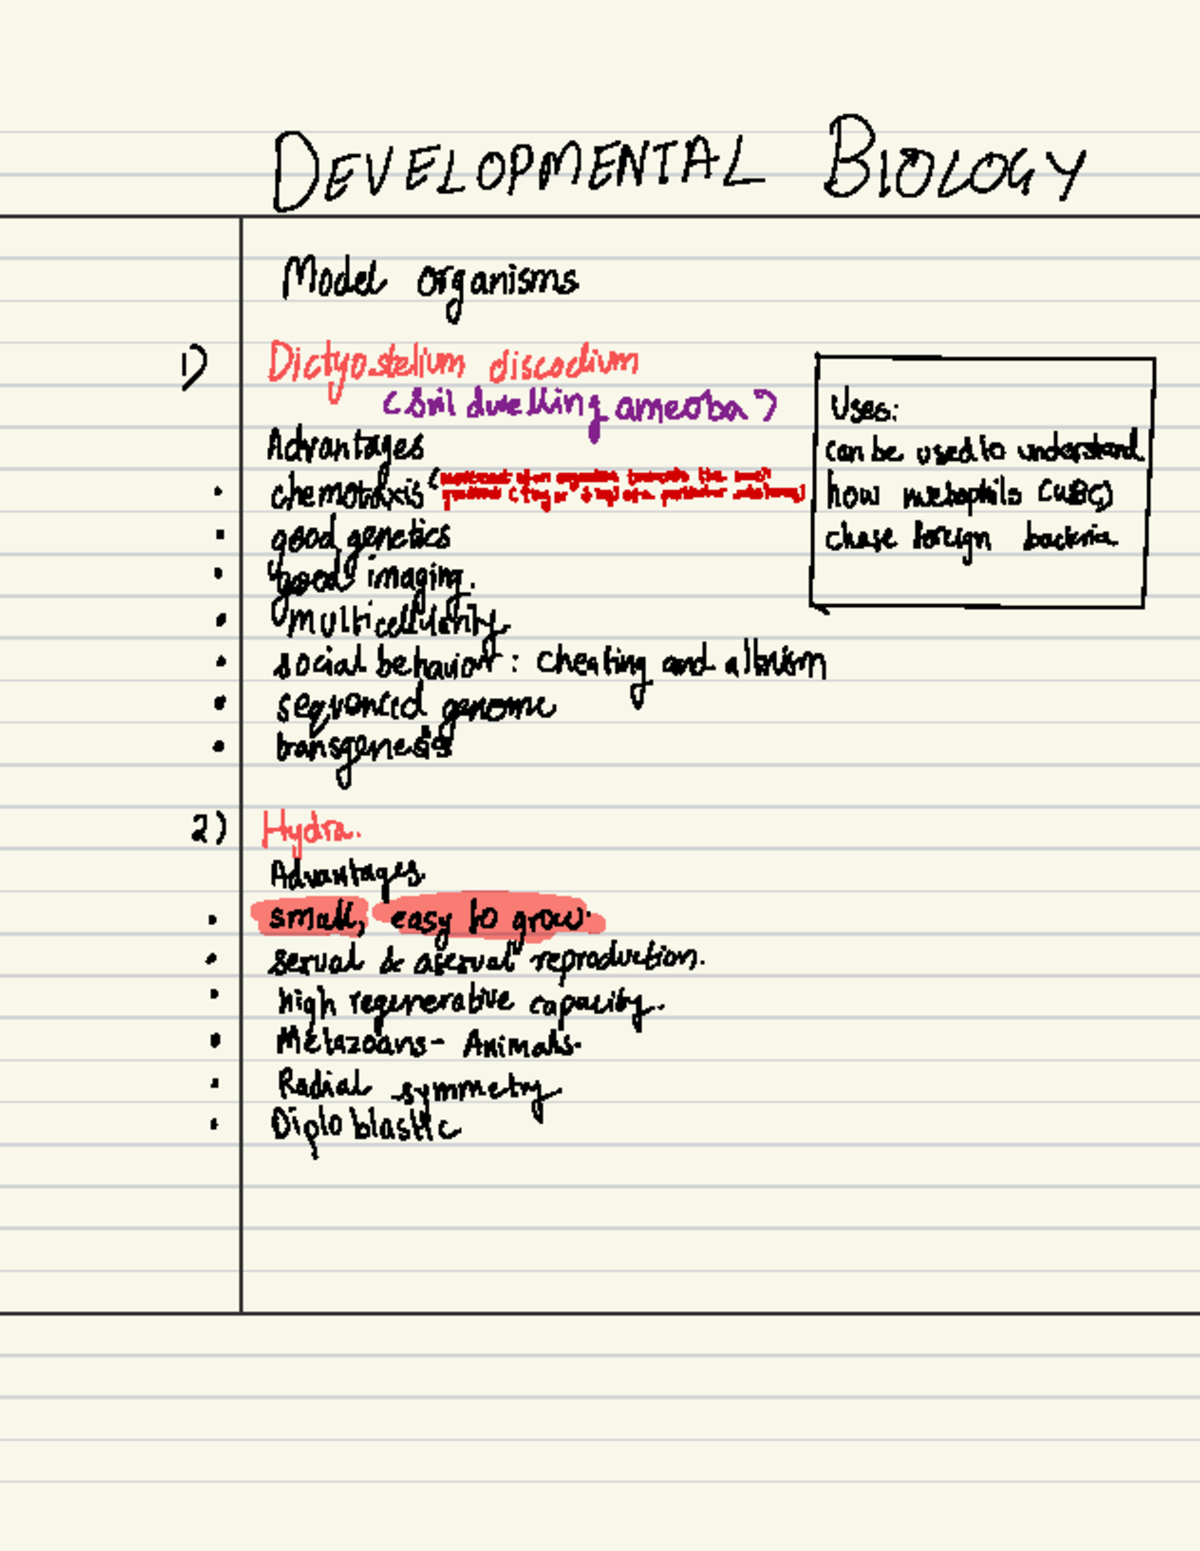 DEVELOPMENTAL BIOLOGY
Model organisms
1) Dictyostelium discodium
(soil dwelling ameoba)
Advantages
• chemotaxis (movement of an organism towards the
• good genetics
• "good" imaging.
• multicellularity
• social behavior: cheating and altruism
• sequenced genome
• transgenesis
Uses:
can be used to understand
how (WBC)
chase foreign bacteria
2) Hydra.
Advantages
• small, easy to grow.
• sexual & asexual reproduction.
• high regenerative capacity.
• Metazoans - Animals.
• Radial symmetry
• Diploblastic